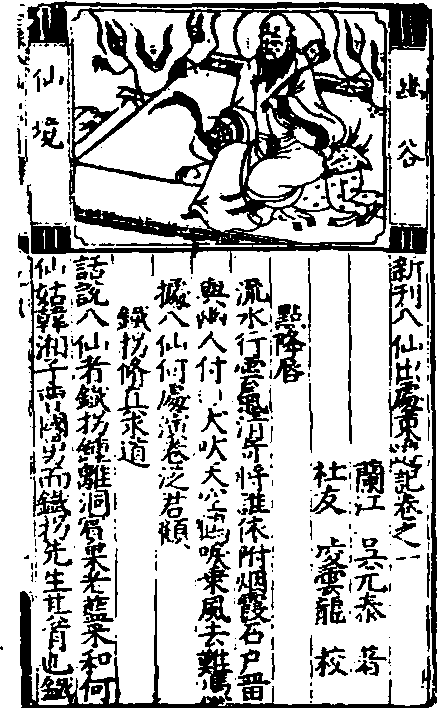 幽谷
仙境
新刊八仙出處東遊記卷之一
蘭江 吳元泰 著
社友 凌雲龍 校
點降唇
流水行雲 將誰依附烟霞石戶 留
與幽人付 犬吠天空 鶴唳乘風去難
據八仙何處 卷泛若顧
鐵拐修真求道
話說八仙者鐵拐鍾離洞賓果老藍采和何
仙姑韓湘子曹國舅而鐵拐先生其首也鐵